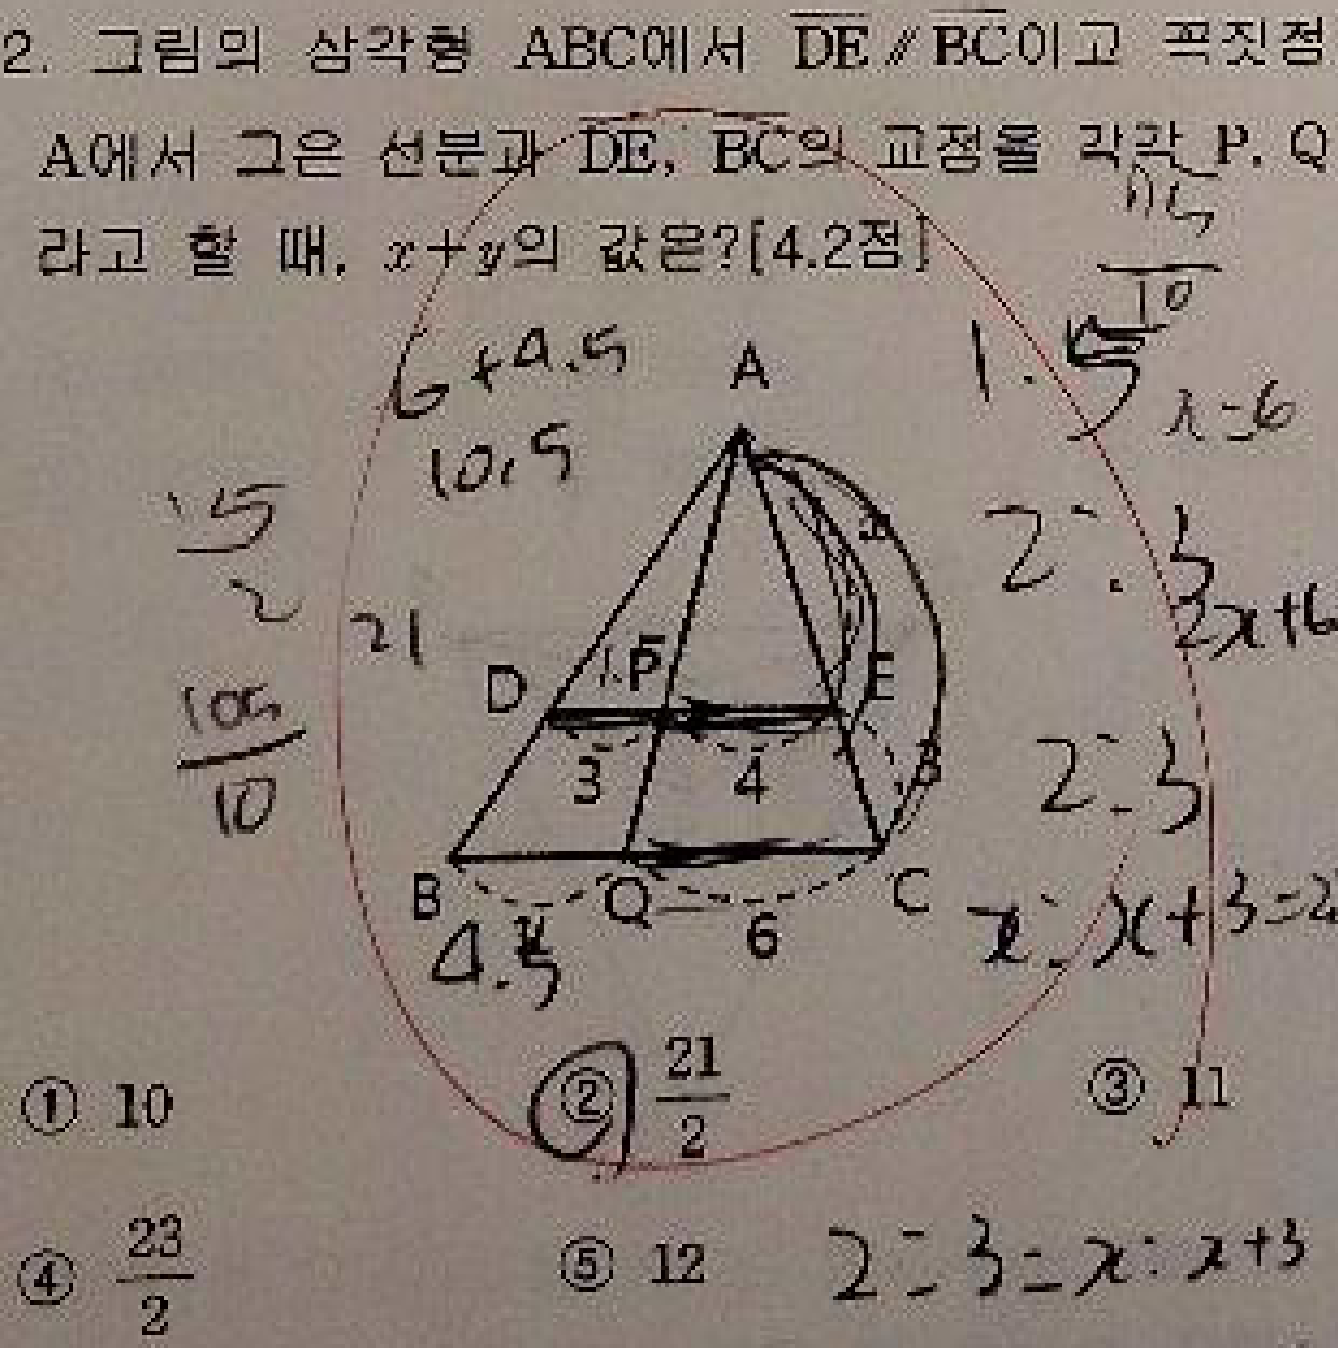 2. 그림의 삼각형 ABC에서 DE // BC이고 꼭짓점
A에서 그은 선분과 DE, BC의 교점을 각각 P, Q
라고 할 때, x+y의 값은?[4.2점]
10
6+4.5
10.5
1.5
x=6
A
x
15
2
2:3
2x+6
21
D
P
E
105
10
3
4
3
2:3
B
Q
C
4.5
6
x:x+3=2
① 10
② 21/2
③ 11
④ 23/2
⑤ 12
2:3=x:x+3